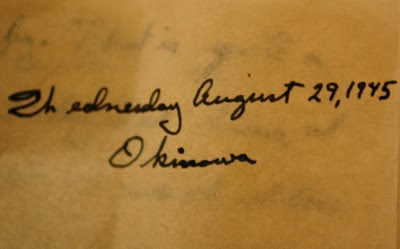 Wednesday August 29, 1945
Okinawa